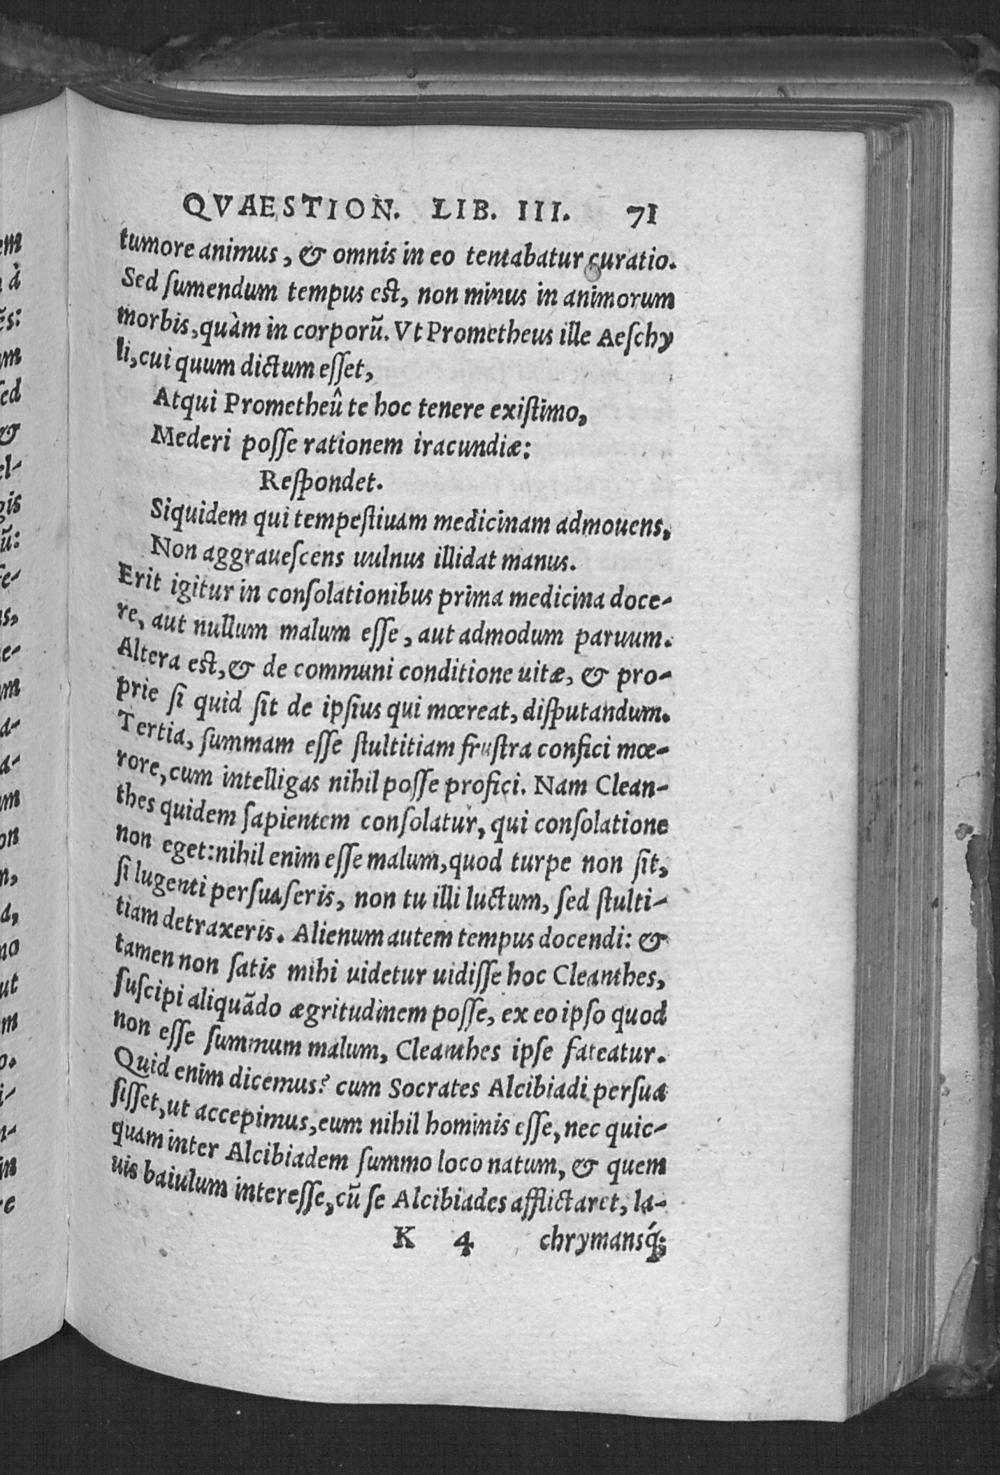 QVAESTION. LIB. III. 71
tumore animus, & omnis in eo tentabatur curatio.
Sed ſumendum tempus est, non minus in animorum
morbis, quàm in corporũ. Vt Prometheus ille Aeſchy
li, cui quum dictum eſſet,
Atqui Prometheû te hoc tenere exiſtimo,
Mederi poſſe rationem iracundiæ:
Reſpondet.
Siquidem qui tempeſtiuam medicinam admouens,
Non aggraueſcens uulnus illidat manus.
Erit igitur in conſolationibus prima medicina doce-
re, aut nullum malum eſſe, aut admodum paruum.
Altera est, & de communi conditione uitæ, & pro-
prie ſi quid ſit de ipſius qui mœreat, diſputandum.
Tertia, ſummam eſſe ſtultitiam fruſtra confici mœ-
rore, cum intelligas nihil poſſe profici. Nam Clean-
thes quidem ſapientem conſolatur, qui conſolatione
non eget: nihil enim eſſe malum, quod turpe non ſit,
ſi lugenti perſuaſeris, non tu illi luctum, ſed ſtulti-
tiam detraxeris. Alienum autem tempus docendi: &
tamen non ſatis mihi uidetur uidiſſe hoc Cleanthes,
ſuſcipi aliquãdo ægritudinem poſſe, ex eo ipſo quod
non eſſe ſummum malum, Cleanthes ipſe fateatur.
Quid enim dicemus? cum Socrates Alcibiadi perſua
ſiſſet, ut accepimus, eum nihil hominis eſſe, nec quic-
quam inter Alcibiadem ſummo loco natum, & quem
uis baiulum intereſſe, cũ ſe Alcibiades afflictaret, la-
K 4 chrymansq́;